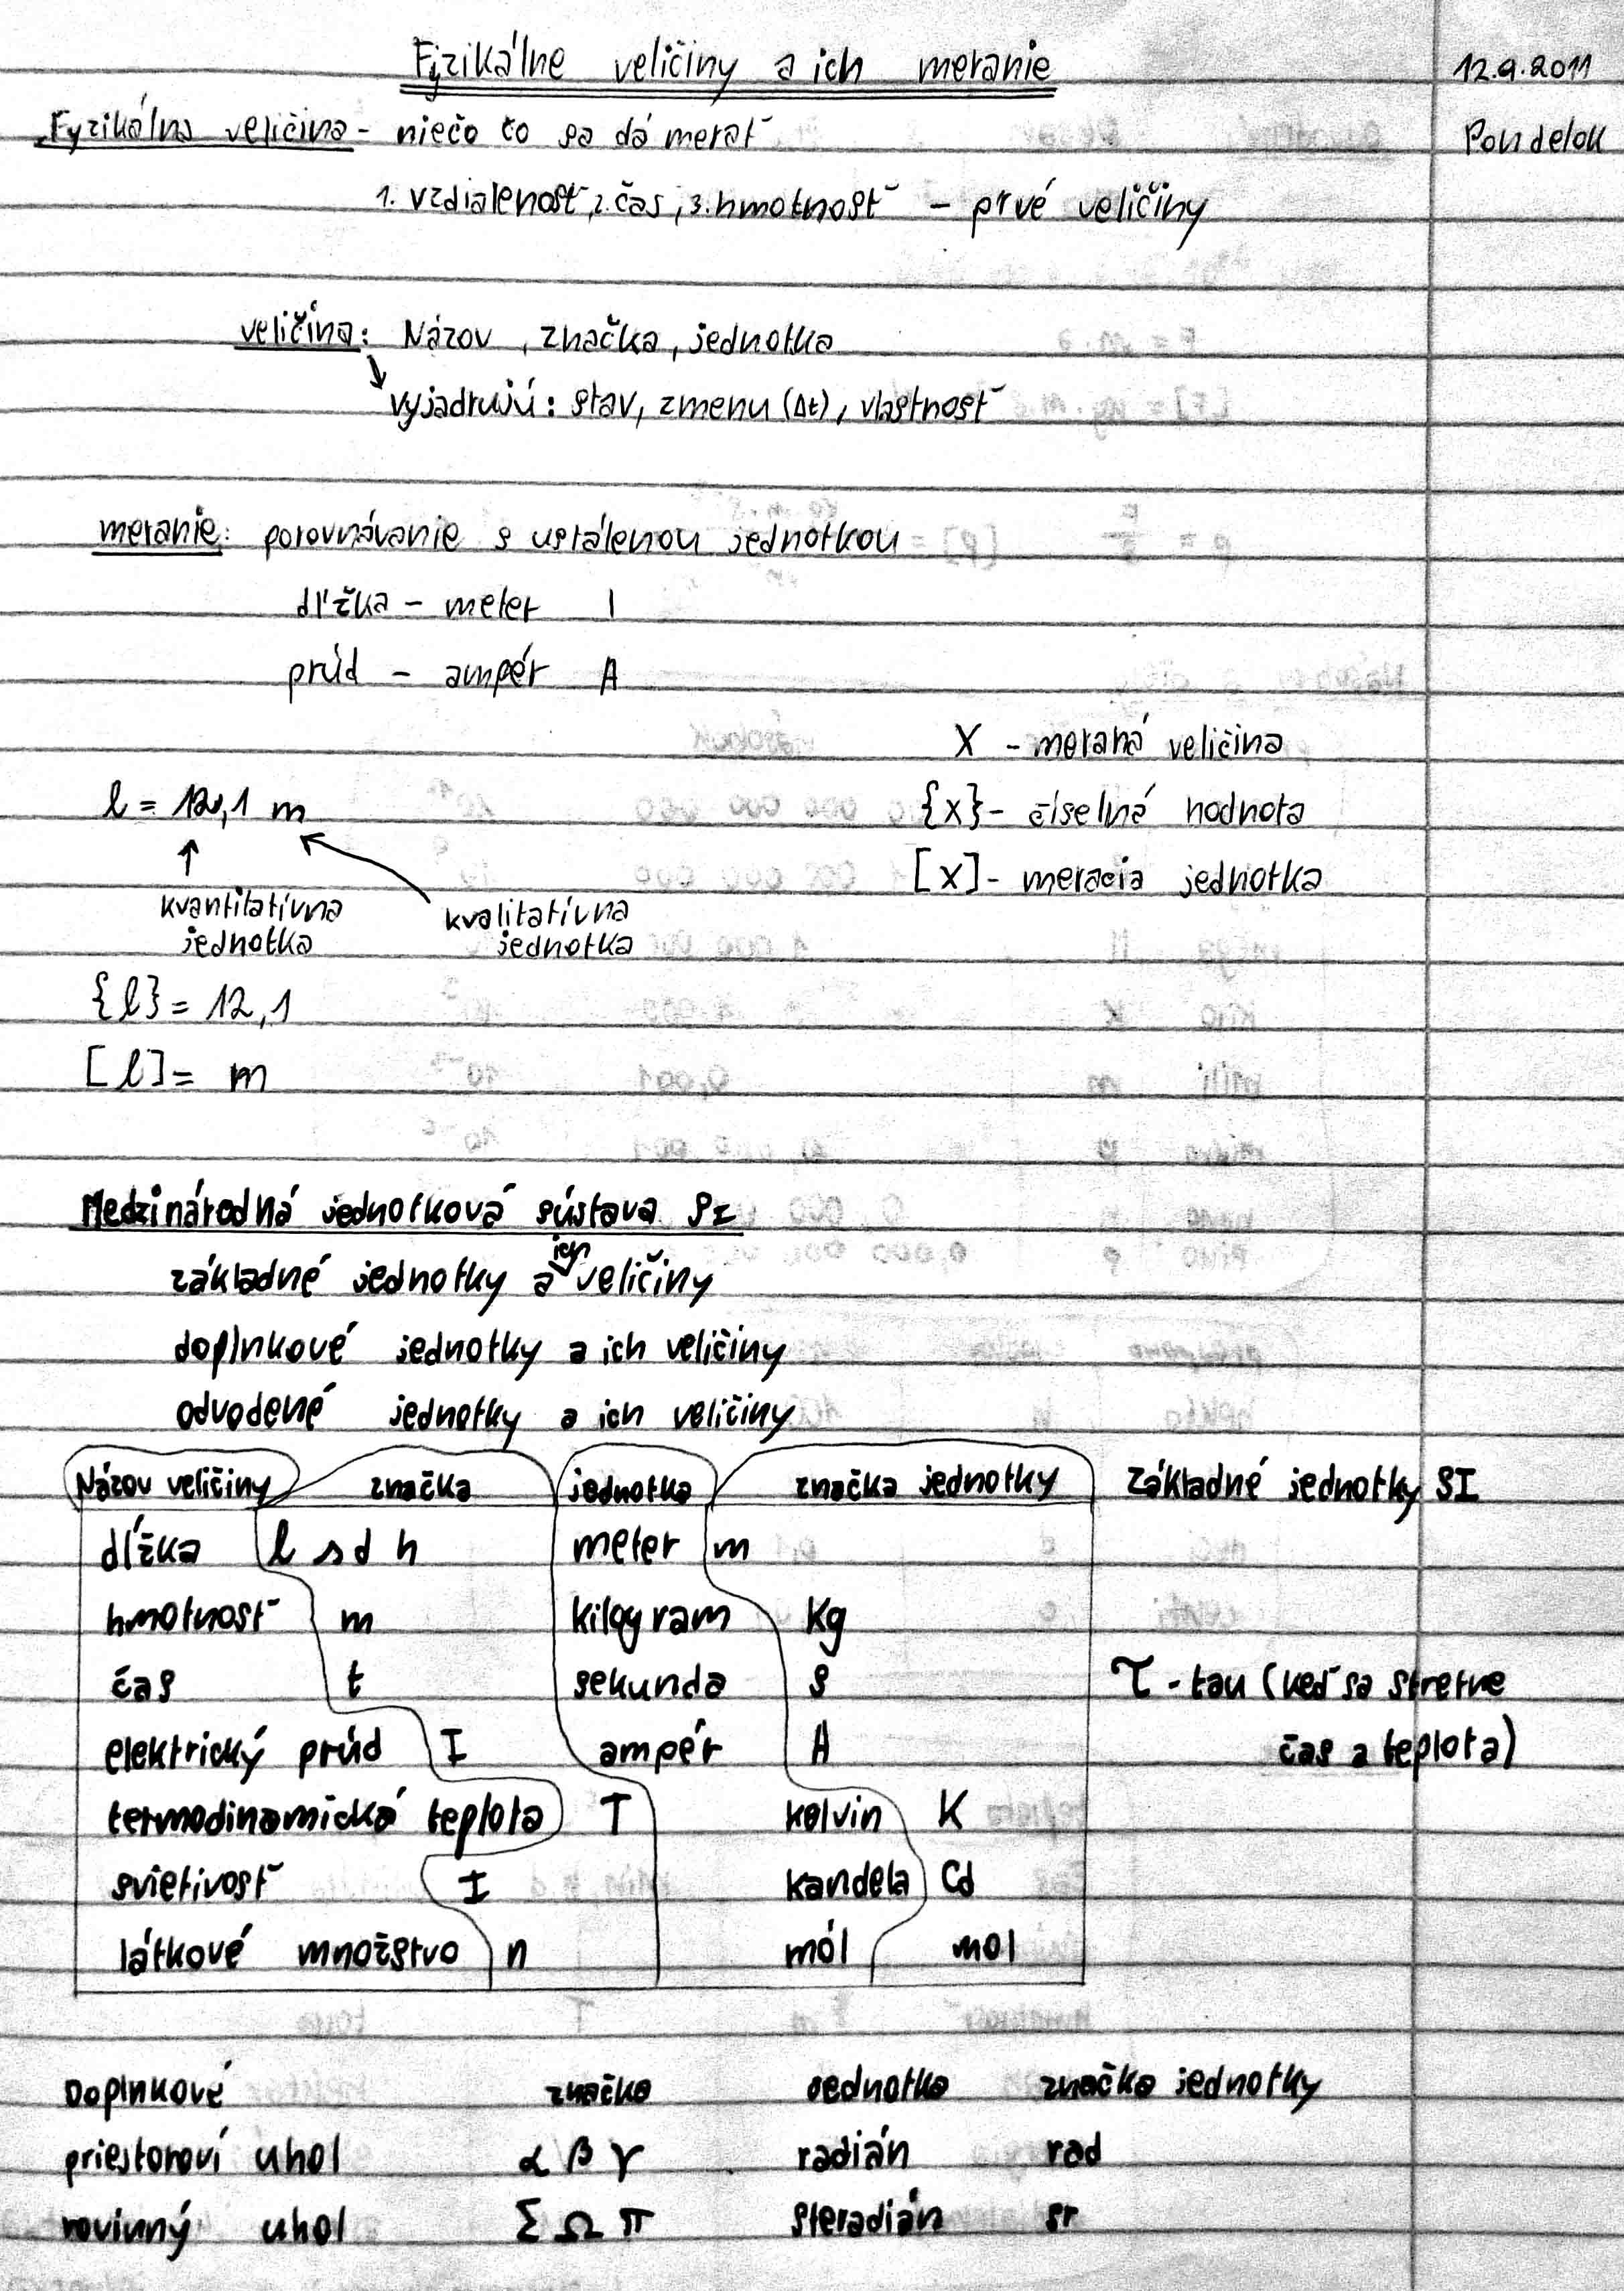 Fyzikálne veličiny a ich meranie 12.9.2011
Fyzikálna veličina - niečo čo sa dá merať Pondelok
1. vzdialenosť, 2. čas, 3. hmotnosť - prvé veličiny
veličina: Názov, značka, jednotka
vyjadrujú: stav, zmenu (Δt), vlastnosť
meranie: porovnávanie s ustálenou jednotkou
dĺžka - meter l
prúd - ampér A
X - meraná veličina
l = 12,1 m {x} - číselná hodnota
[x] - meracia jednotka
kvantitatívna jednotka
kvalitatívna jednotka
{l} = 12,1
[l] = m
Medzinárodná jednotková sústava SI
základné jednotky a ich veličiny
doplnkové jednotky a ich veličiny
odvodené jednotky a ich veličiny
Názov veličiny značka jednotka značka jednotky Základné jednotky SI
dĺžka l s d h meter m
hmotnosť m kilogram Kg
čas t sekunda s τ - tau (keď sa stretne
elektrický prúd I ampér A čas a teplota)
termodinamická teplota T kelvin K
svietivosť I kandela Cd
látkové množstvo n mól mol
Doplnkové značka Jednotka značka jednotky
priestoroví uhol α β γ radián rad
rovinný uhol Σ Ω π steradián sr